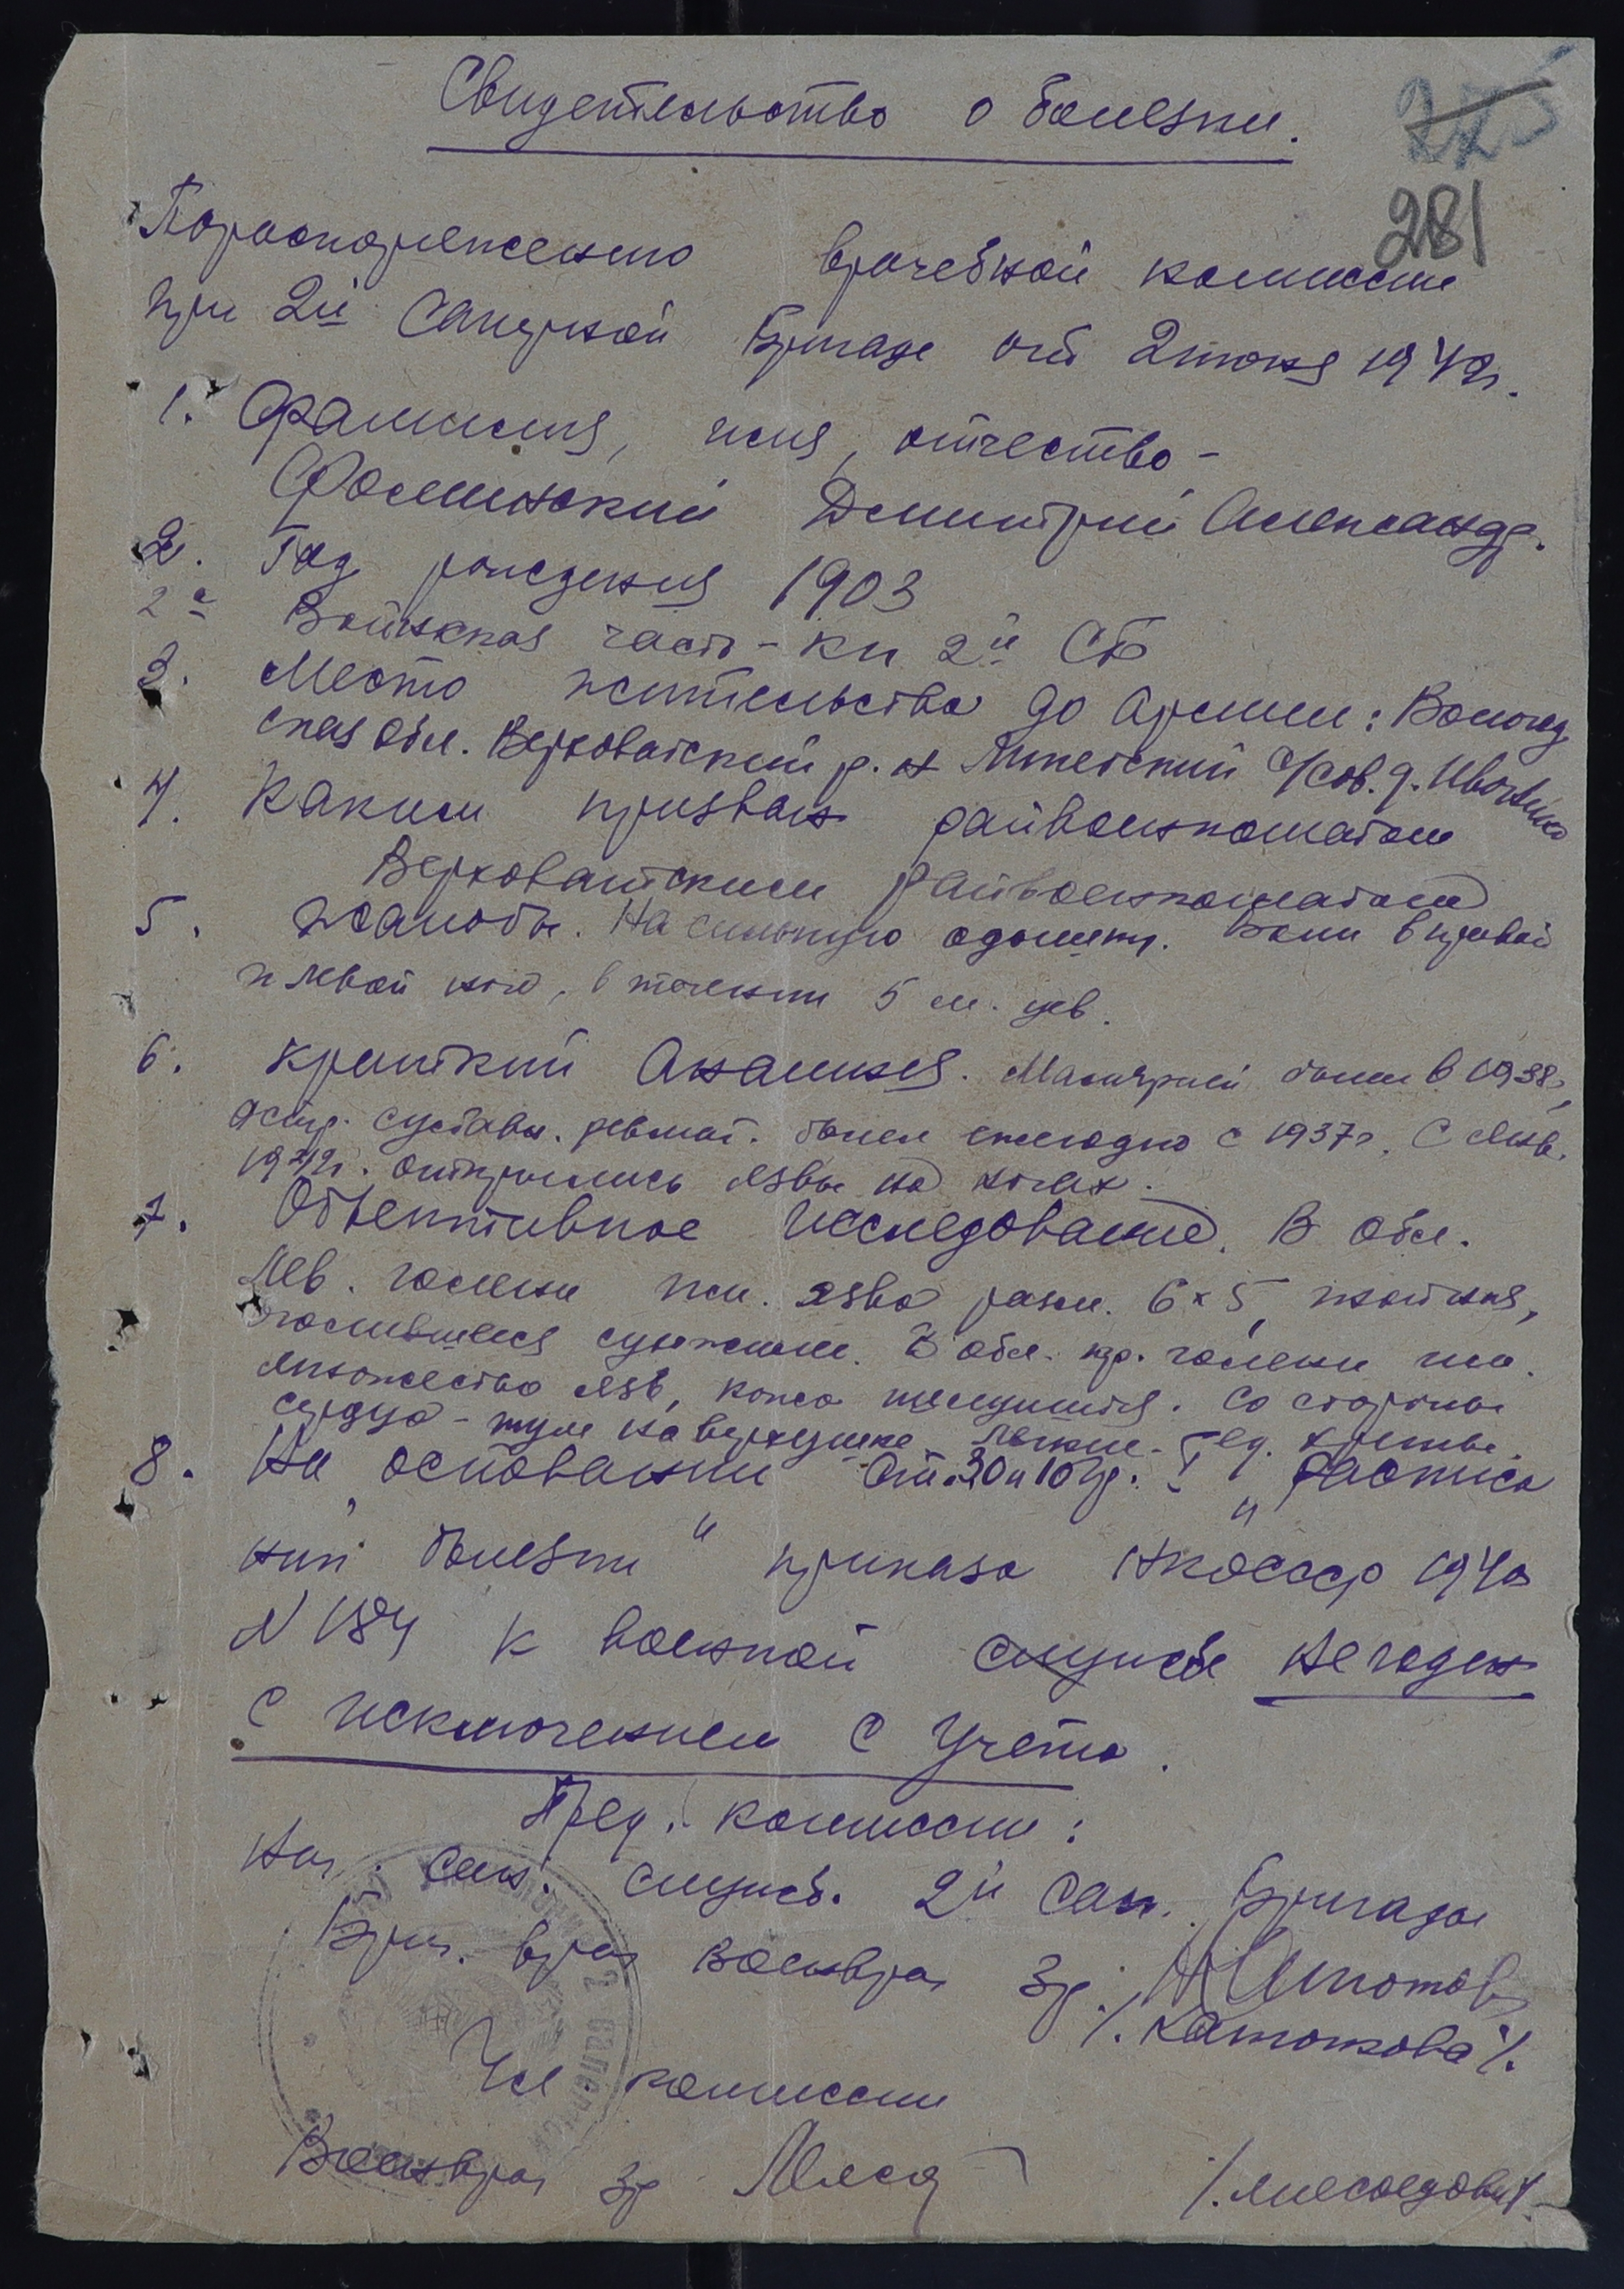 Свидетельство о болезни.
275
281
Пораспоряжению врачебной комиссии
при 2й Саперной Бригаде от 2 июня 1942г.
1. Фамилия, имя, отчество -
Фоминский Дмитрий Александр.
2. Год рождения 1903
2а Воинская часть - кп 2й СБ
3. Место жительства до Армии: Вологод
ская обл. Верховажский р.н с/сов. д.
4. Каким призван райвоенкоматом
Верховажским райвоенкоматом
5. Жалобы. На сильную одышку. Боли в правой
и левой ноге, в течении 5 м-цев.
6. Краткий Анамнез. Малярией болел в 1938г,
остр. суставн. ревмат. болел ежегодно с 1937г. С янв.
1942г. открылись язвы на ногах.
7. Объективное исследование. В обл.
лев. голени им. язва разм. 6 x 5,
В обл. пр. голени им.
множество язв, кожа шелушится. Со стороны
сердца - шум на верхушке. Легкие - ед. хрипы.
8. На основании Ст. 30 и 10 гр. I „Расписа
ний болезни" приказа НКОСССР 1940
N 184 к военной службе негоден
с исключением с учета.
Пред. комиссии:
Нач. сан. служб. 2й Сап. Бригады
Бриг. врач Военврач 3р.
/. Катюткова /.
Чл комиссии
Военврач 3р Мясод /. Мясоедова /.